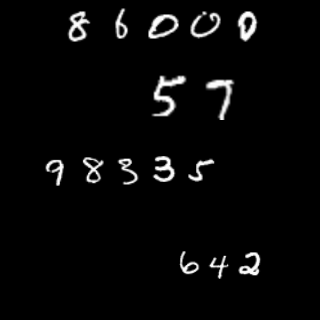 86000
57
98335
642